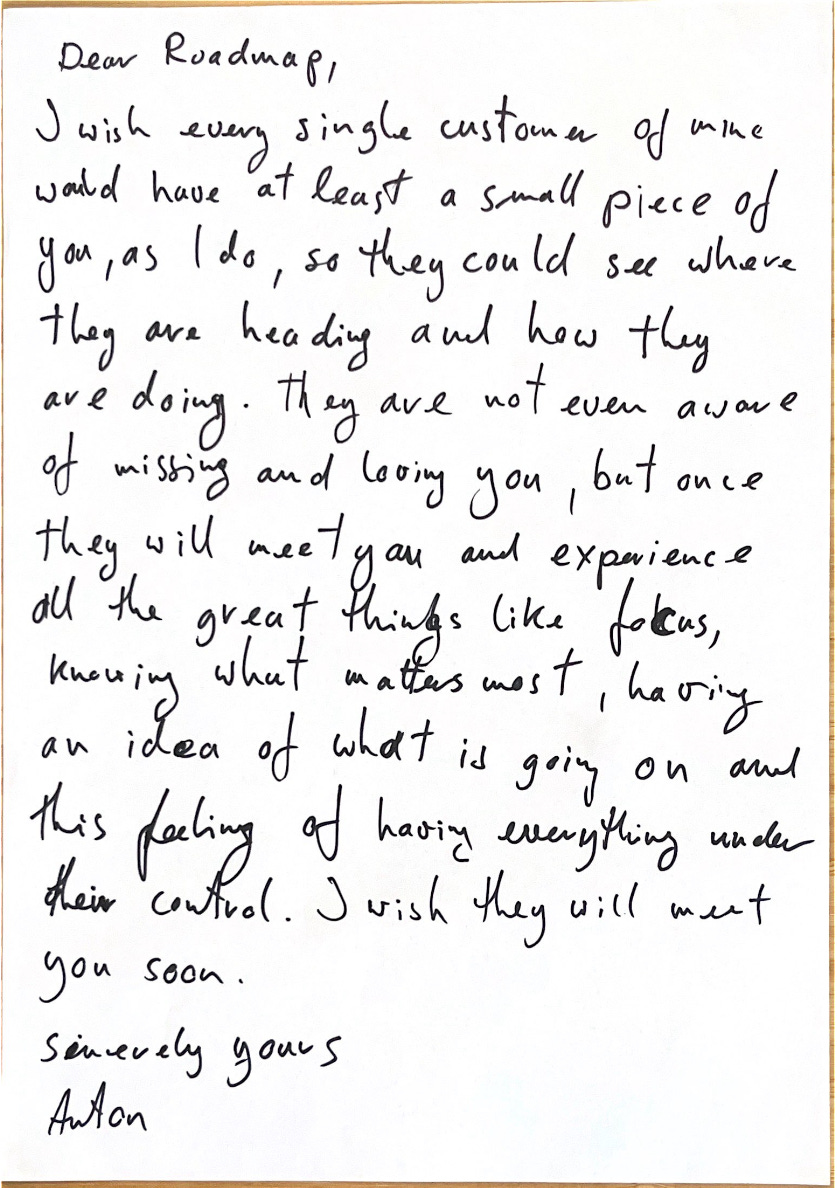 Dear Roadmap,
I wish every single customer of mine
would have at least a small piece of
you, as I do, so they could see where
they are heading and how they
are doing. They are not even aware
of missing and loving you, but once
they will meet you and experience
all the great things like focus,
knowing what matters most, having
an idea of what is going on and
this feeling of having everything under
their control. I wish they will meet
you soon.
Sincerely yours
Anton